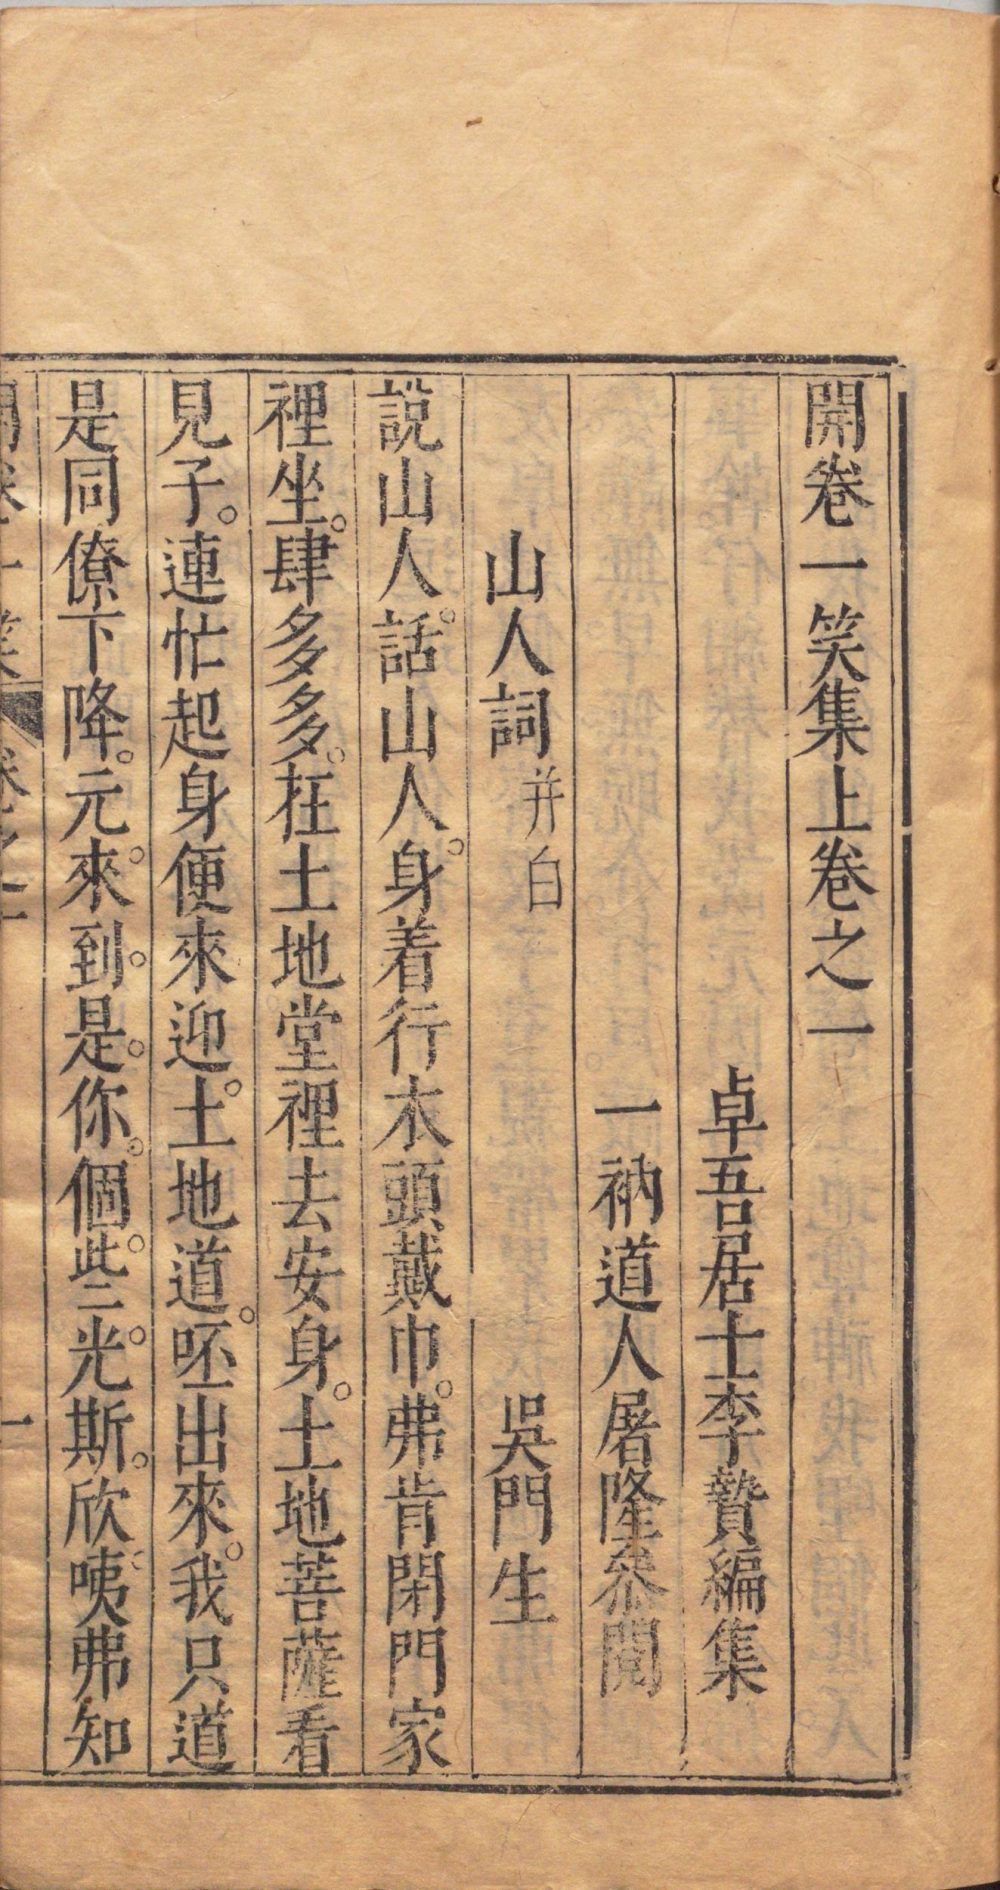 開卷一笑集上卷之一
卓吾居士李贄編集
一衲道人屠隆叅閱
山人詞并白 吳門生
說山人。話山人。身着行衣頭戴巾。弗肯閉門家
裡坐。肆多多。在土地堂裡去安身。土地菩薩看
見子。連忙起身便來迎。土地道。呸出來。我只道
是同僚下降。元來。到。是。你。個。些。光。斯。欣。咦弗知